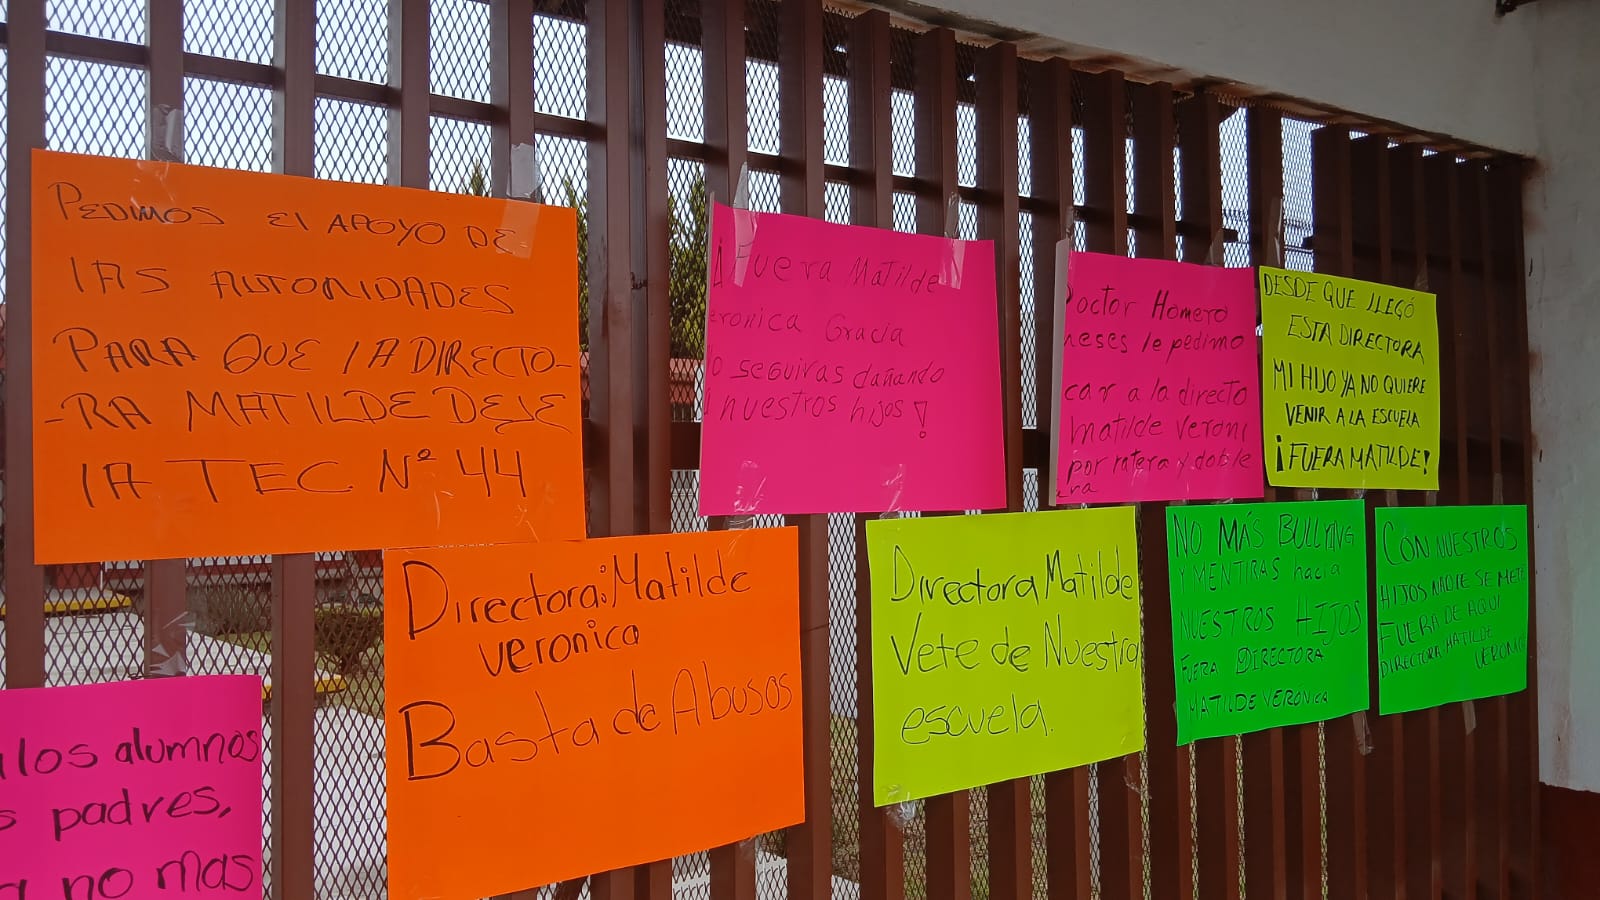 PEDIMOS El APOYO DE
lAS AUTORIDADES
PARA QUE lA DIRECTO-
-RA MATILDE DEJE
lA TEC. Nº 44
¡Fuera Matilde
eronica Gracia
o seguiras dañando
nuestros hijos!
octor Homero
eses le pedimo
car a la directo
matilde Veroni
por ratera y doble
ara
DESDE QUE llEGÓ
ESTA DIRECTORA
MI HIJO YA NO QUIERE
VENIR A LA ESCUELA
¡FUERA MATILDE!
Directora: Matilde
veronica
Basta de Abusos
Directora Matilde
Vete de Nuestra
escuela.
NO MÁS BULLYING
Y MENTIRAS hacia
NUESTROS HIJOS
FUERA DIRECTORA
MATILDE VERONICA
CON NUESTROS
HIJOS NADIE SE METE
FUERA DE AQUÍ
DIRECTORA MATILDE
VERONIC
los alumnos
s padres,
a no mas